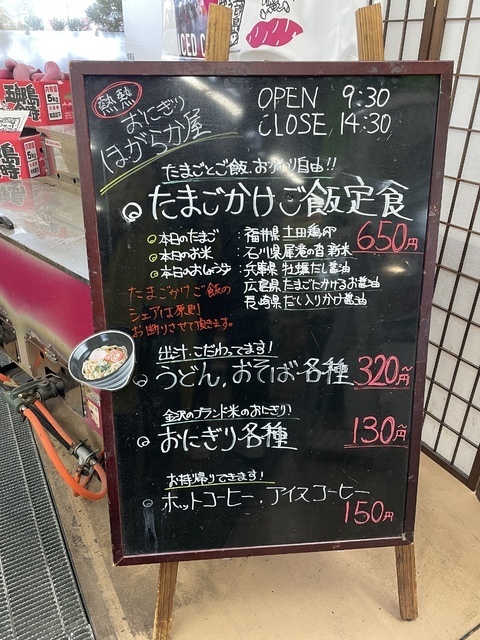 ICED C
5kg
5kg
熱熱
おにぎり
ほがらか屋
OPEN 9:30
CLOSE 14:30
たまごとご飯、おかわり自由!!
たまごかけご飯定食
650円
本日のたまご：福井県 土田鶏卵
本日のお米：石川県 新米
本日のおしょうゆ：兵庫県 牡蠣だし醤油
広島県 たまごにかけるお醤油
長崎県 だし入りかけ醤油
たまごかけご飯の
シェアは原則
お断りさせて頂きます。
出汁、こだわってます!
うどん、おそば各種 320円~
金沢のブランド米のおにぎり!
おにぎり各種 130円~
お持帰りできます!
ホットコーヒー、アイスコーヒー
150円